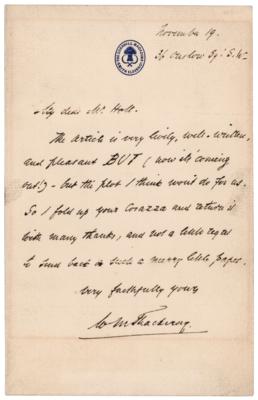 November 19.
36 Onslow Sqr: S.W.
My dear Mr Holt.
The article is very lively, well-written,
and pleasant BUT (now its' coming
out!) - but the plot I think won't do for us.
So I fold up your Corazza and return it
with many thanks, and not a little regret
to send back such a merry little paper.
Very faithfully yours
W M Thackeray.